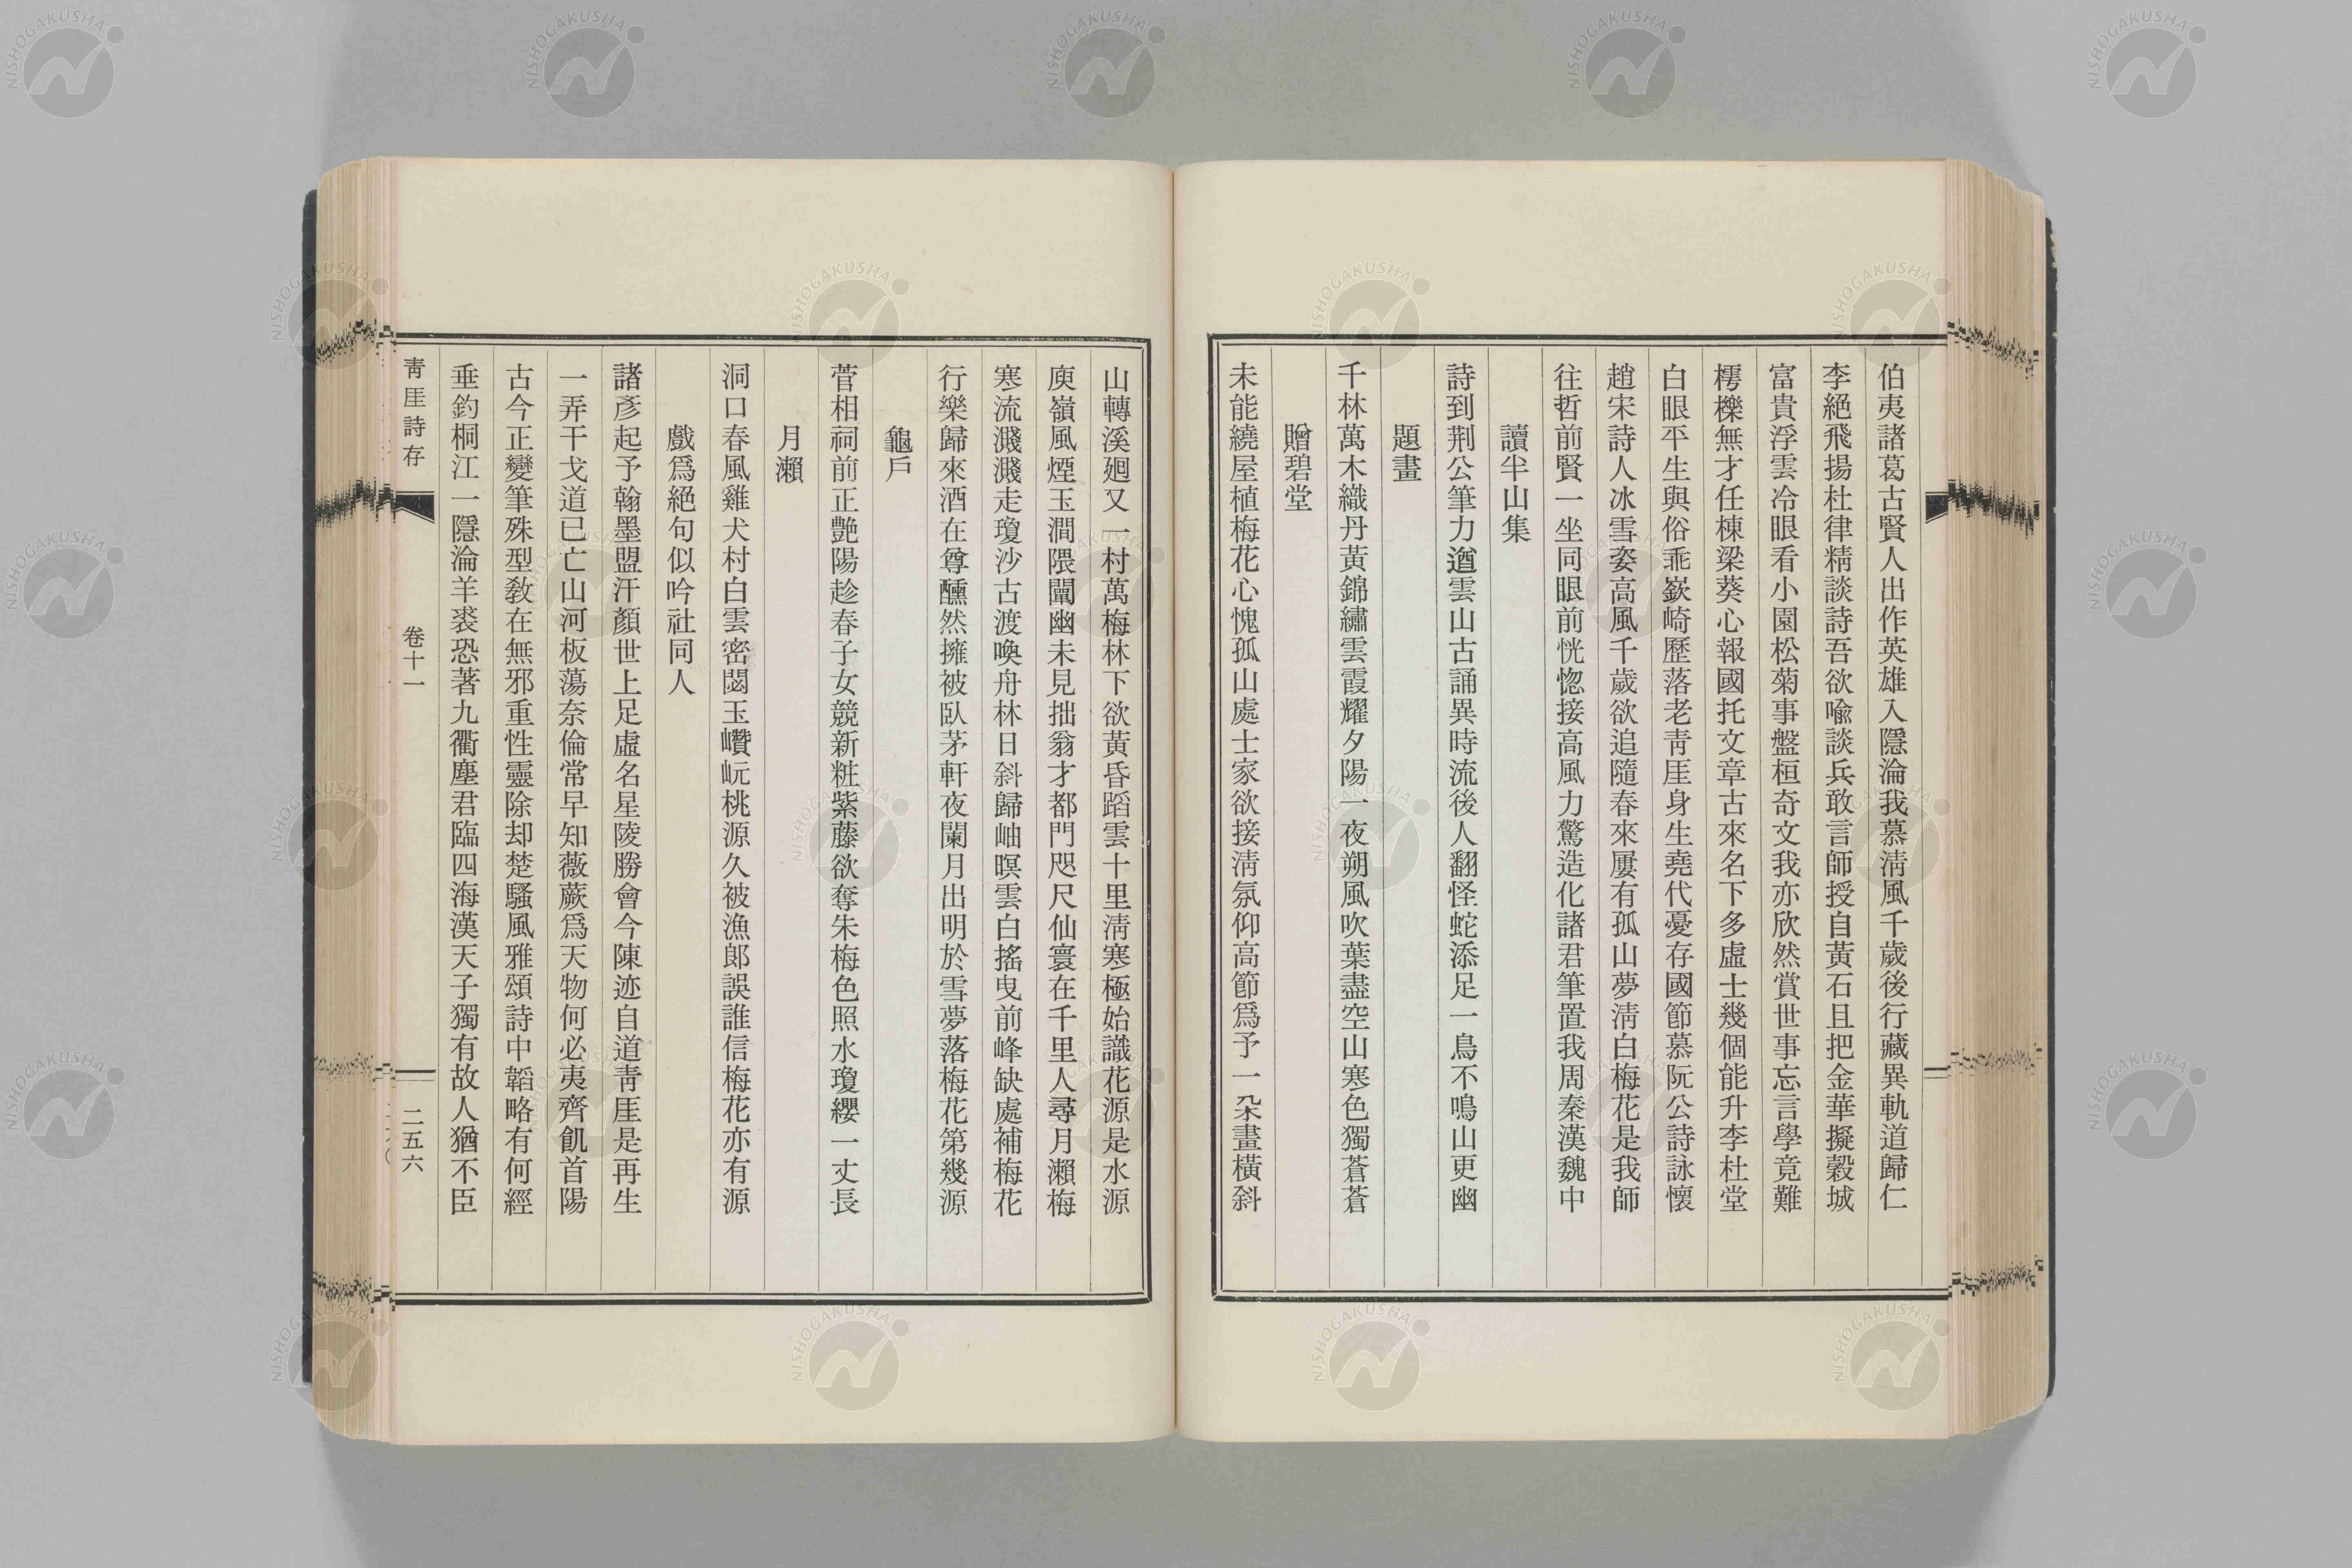 伯夷諸葛古賢人出作英雄入隱淪我慕淸風千歲後行藏異軌道歸仁
李絕飛揚杜律精談詩吾欲喩談兵敢言師授自黃石且把金華擬穀城
富貴浮雲冷眼看小園松菊事盤桓奇文我亦欣然賞世事忘言學竟難
樗櫟無才任棟梁葵心報國托文章古來名下多虛士幾個能升李杜堂
白眼平生與俗乖嶔崎歷落老靑厓身生堯代憂存國節慕阮公詩詠懷
趙宋詩人冰雪姿高風千歲欲追隨春來屢有孤山夢淸白梅花是我師
往哲前賢一坐同眼前恍惚接高風力驚造化諸君筆置我周秦漢魏中
讀半山集
詩到荆公筆力遒雲山古誦異時流後人翻怪蛇添足一鳥不鳴山更幽
題畫
千林萬木織丹黃錦繡雲霞耀夕陽一夜朔風吹葉盡空山寒色獨蒼蒼
贈碧堂
未能繞屋植梅花心愧孤山處士家欲接淸氛仰高節爲予一朶畫橫斜
山轉溪廻又一村萬梅林下欲黃昏蹈雲十里淸寒極始識花源是水源
庾嶺風煙玉澗隈闡幽未見拙翁才都門咫尺仙寰在千里人尋月瀨梅
寒流濺濺走瓊沙古渡喚舟林日斜歸岫暝雲白搖曳前峰缺處補梅花
行樂歸來酒在尊醺然擁被臥茅軒夜闌月出明於雪夢落梅花第幾源
龜戶
菅相祠前正艷陽趁春子女競新粧紫藤欲奪朱梅色照水瓊纓一丈長
月瀨
洞口春風雞犬村白雲密閟玉巑岏桃源久被漁郞誤誰信梅花亦有源
戲爲絕句似吟社同人
諸彥起予翰墨盟汗顏世上足虛名星陵勝會今陳迹自道靑厓是再生
一弄干戈道已亡山河板蕩奈倫常早知薇蕨爲天物何必夷齊飢首陽
古今正變筆殊型敎在無邪重性靈除却楚騷風雅頌詩中韜略有何經
垂釣桐江一隱淪羊裘恐著九衢塵君臨四海漢天子獨有故人猶不臣
靑厓詩存
卷十一
二五六
NISHOGAKUSHA